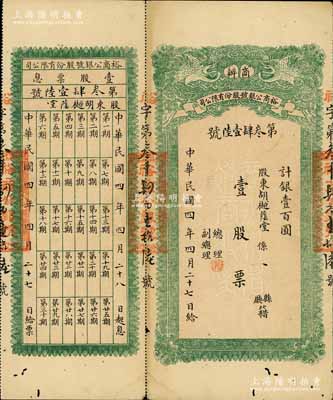 商辦
裕商公銀號股份有限公司
第叁肆壹陸號
計銀壹百圓
股東胡樾蔭堂係 縣廳籍
壹股票
總理
副總理
中華民國四年四月二十七日給
裕商公銀號股份有限公司
壹股票息
第叁肆壹陸號
股東胡樾蔭堂
中華民國四年四月二十八日起息
第一期 第二期 第三期 第四期 第五期 第六期
第七期 第八期 第九期 第十期 第十一期 第十二期
第十三期 第十四期 第十五期 第十六期 第十七期 第十八期
第十九期 第二十期 第廿一期 第廿二期 第廿三期 第廿四期
第廿五期 第廿六期 第廿七期 第廿八期 第廿九期 第三十期
中華民國四年四月二十七日給票
上海陽明拍賣